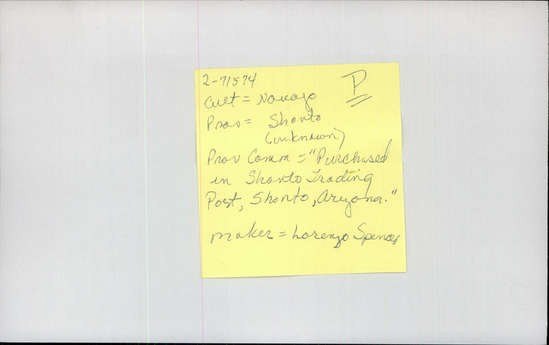 2-71574
P
Cult = Navajo
Prov = Shonto
(unknown)
Prov Comm = "Purchased
in Shonto Trading
Post, Shonto, Arizona."
maker = Lorenzo Spencer